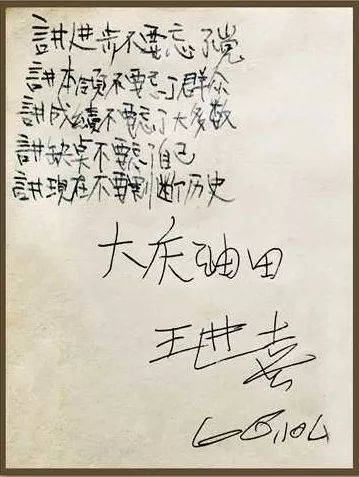 讲进步不要忘了党
讲本領不要忘了群众
讲成績不要忘了大多数
讲缺点不要忘了自己
讲現在不要割断历史
大庆油田
王进喜
66.10.4